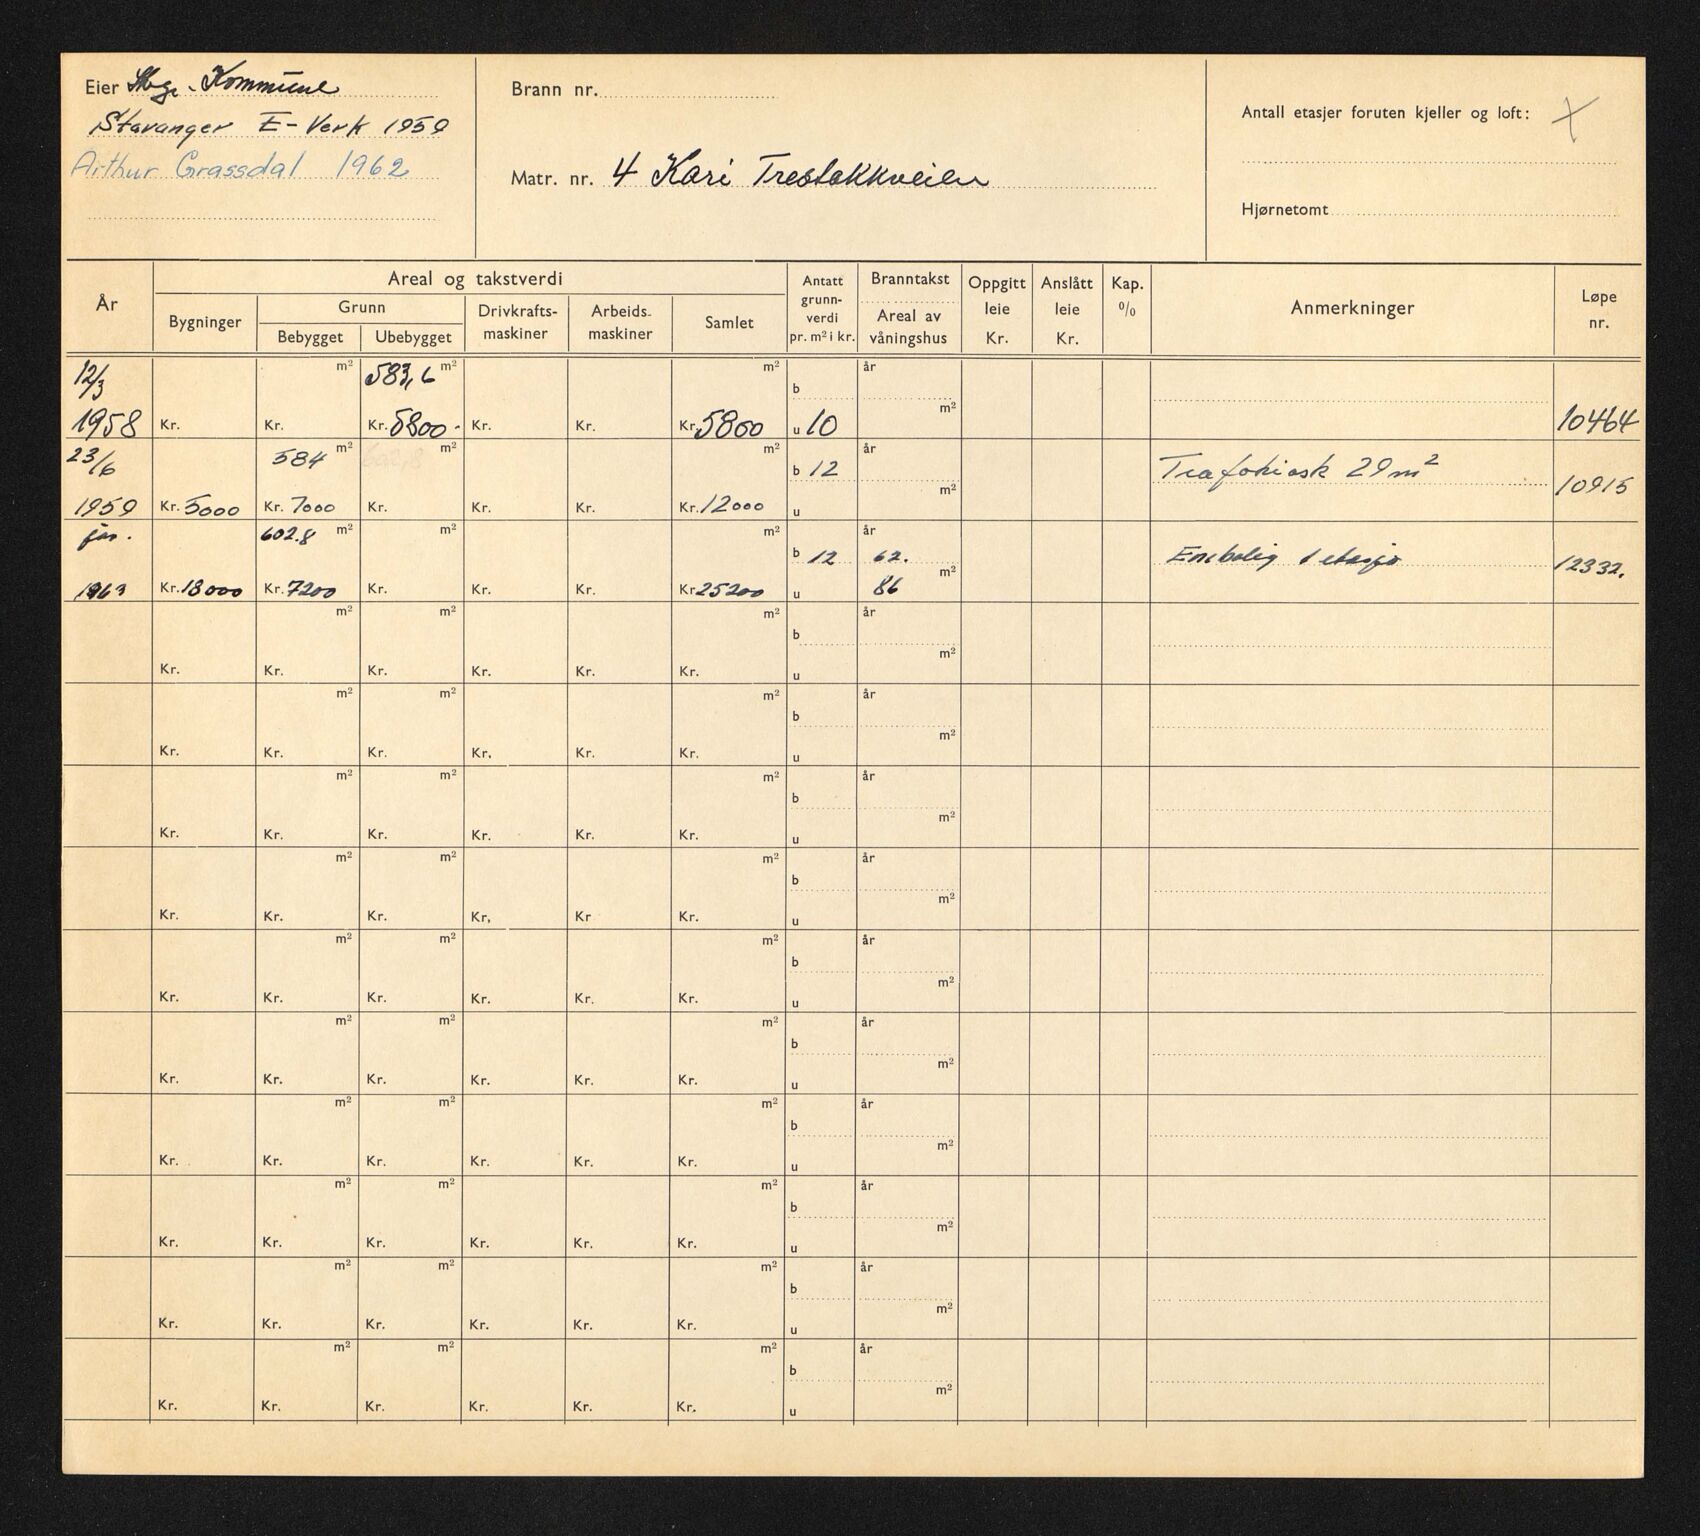 Eier Stvgr. Kommune
Stavanger E-Verk 1959
Arthur Grassdal 1962
Brann nr.
Matr. nr. 4 Kari Trestakkveien
Antall etasjer foruten kjeller og loft:
Hjørnetomt
År
Areal og takstverdi
Bygninger
Grunn
Bebygget Ubebygget
Drivkrafts-
maskiner
Arbeids-
maskiner
Samlet
Antatt
grunn-
verdi
pr. m² i kr.
Branntakst
Areal av
våningshus
Oppgitt
leie
Kr.
Anslått
leie
Kr.
Kap.
%
Anmerkninger
Løpe
nr.
12/3 m² 583,6 m² m² b år
1958 Kr. Kr. Kr. 5800.- Kr. Kr. Kr. 5800 u 10 m² 10464
23/6 584 m² 602,8 m² m² b 12 år Trafokiosk 29 m²
1959 Kr. 5000 Kr. 7000 Kr. Kr. Kr. Kr. 12000 u m² 10915
jan. 602.8 m² m² m² b 12 år 62. Enebolig 1 etasje
1963 Kr. 18000 Kr. 7200 Kr. Kr. Kr. Kr. 25200 u 86 m² 12332.
m² m² m² b år
Kr. Kr. Kr. Kr. Kr. Kr. u m²
m² m² m² b år
Kr. Kr. Kr. Kr. Kr. Kr. u m²
m² m² m² b år
Kr. Kr. Kr. Kr. Kr. Kr. u m²
m² m² m² b år
Kr. Kr. Kr. Kr. Kr Kr. u m²
m² m² m² b år
Kr. Kr. Kr. Kr. Kr. Kr. u m²
m² m² m² b år
Kr. Kr. Kr. Kr. Kr. Kr. u m²
m² m² m² b år
Kr. Kr. Kr. Kr. Kr. Kr. u m²
m² m² m² b år
Kr. Kr. Kr. Kr. Kr. Kr. u m²
m² m² m² b år
Kr. Kr. Kr. Kr. Kr. Kr. u m²
m² m² m² b år
Kr. Kr. Kr. Kr. Kr. Kr. u m²